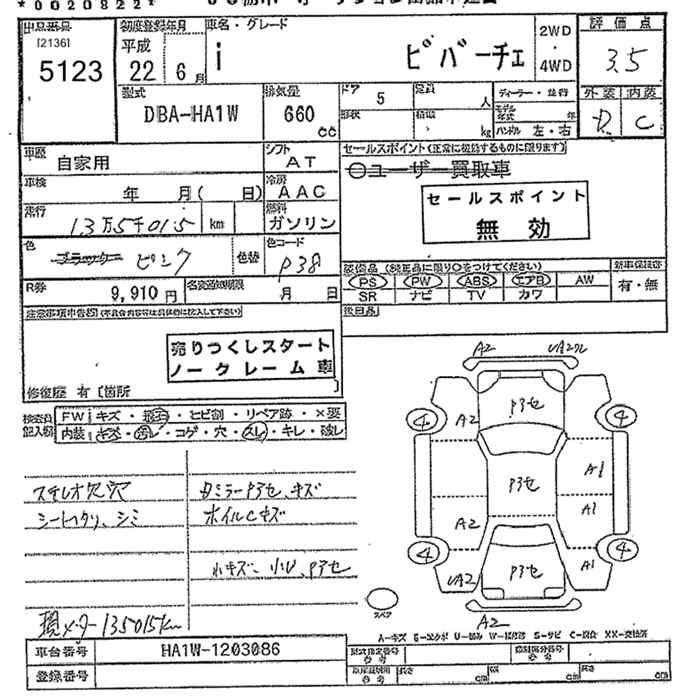 *0020822*
出品番号
[2136]
5123
初度登録年月
平成
22年 6月
車名・グレード
i ビバーチェ
2WD
・
4WD
評価点
3.5
外装 内装
D C
型式
DBA-HA1W
排気量
660
cc
ドア
5
形状
定員
人
積載
kg
ディーラー・並行
モデル年式 年
ハンドル 左・右
車歴
自家用
シフト
AT
車検
年 月( 日)
冷房
AAC
走行
13万5千01.5 km
燃料
ガソリン
色
ブラック ピンク
色替
色コード
P38
R券
9,910円
名変通知期限
月 日
セールスポイント(正常に機能するものに限ります)
○ユーザー買取車
セールスポイント
無効
装備品(純正品に限り○をつけてください)
PS PW ABS エアB AW
SR ナビ TV カワ
新車保証書
有・無
後日品
注意事項申告欄
売りつくしスタート
ノークレーム車
修復歴 有[箇所
検査員
記入欄
FW キズ・飛石・ヒビ割・リペア跡・×要
内装 キズ・汚レ・コゲ・穴・スレ・キレ・破レ
ステレオ欠穴
シートスリ、シミ
左ミラーアセ、キズ
ホイルCキズ
小キズ、小U、アセ
現メーター135015km
A2
UA2ワレ
A2
アアセ
4
4
A1
アアセ
A1
A2
4
4
UA2
アアセ
A1
A2
スペア
A-キズ E-エクボ U-凹み W-補修跡 S-サビ C-腐食 XX-交換済
車台番号
HA1W-1203086
登録番号
型式指定番号
参考
類別区分番号
参考
長さ
cm
幅
cm
高さ
cm